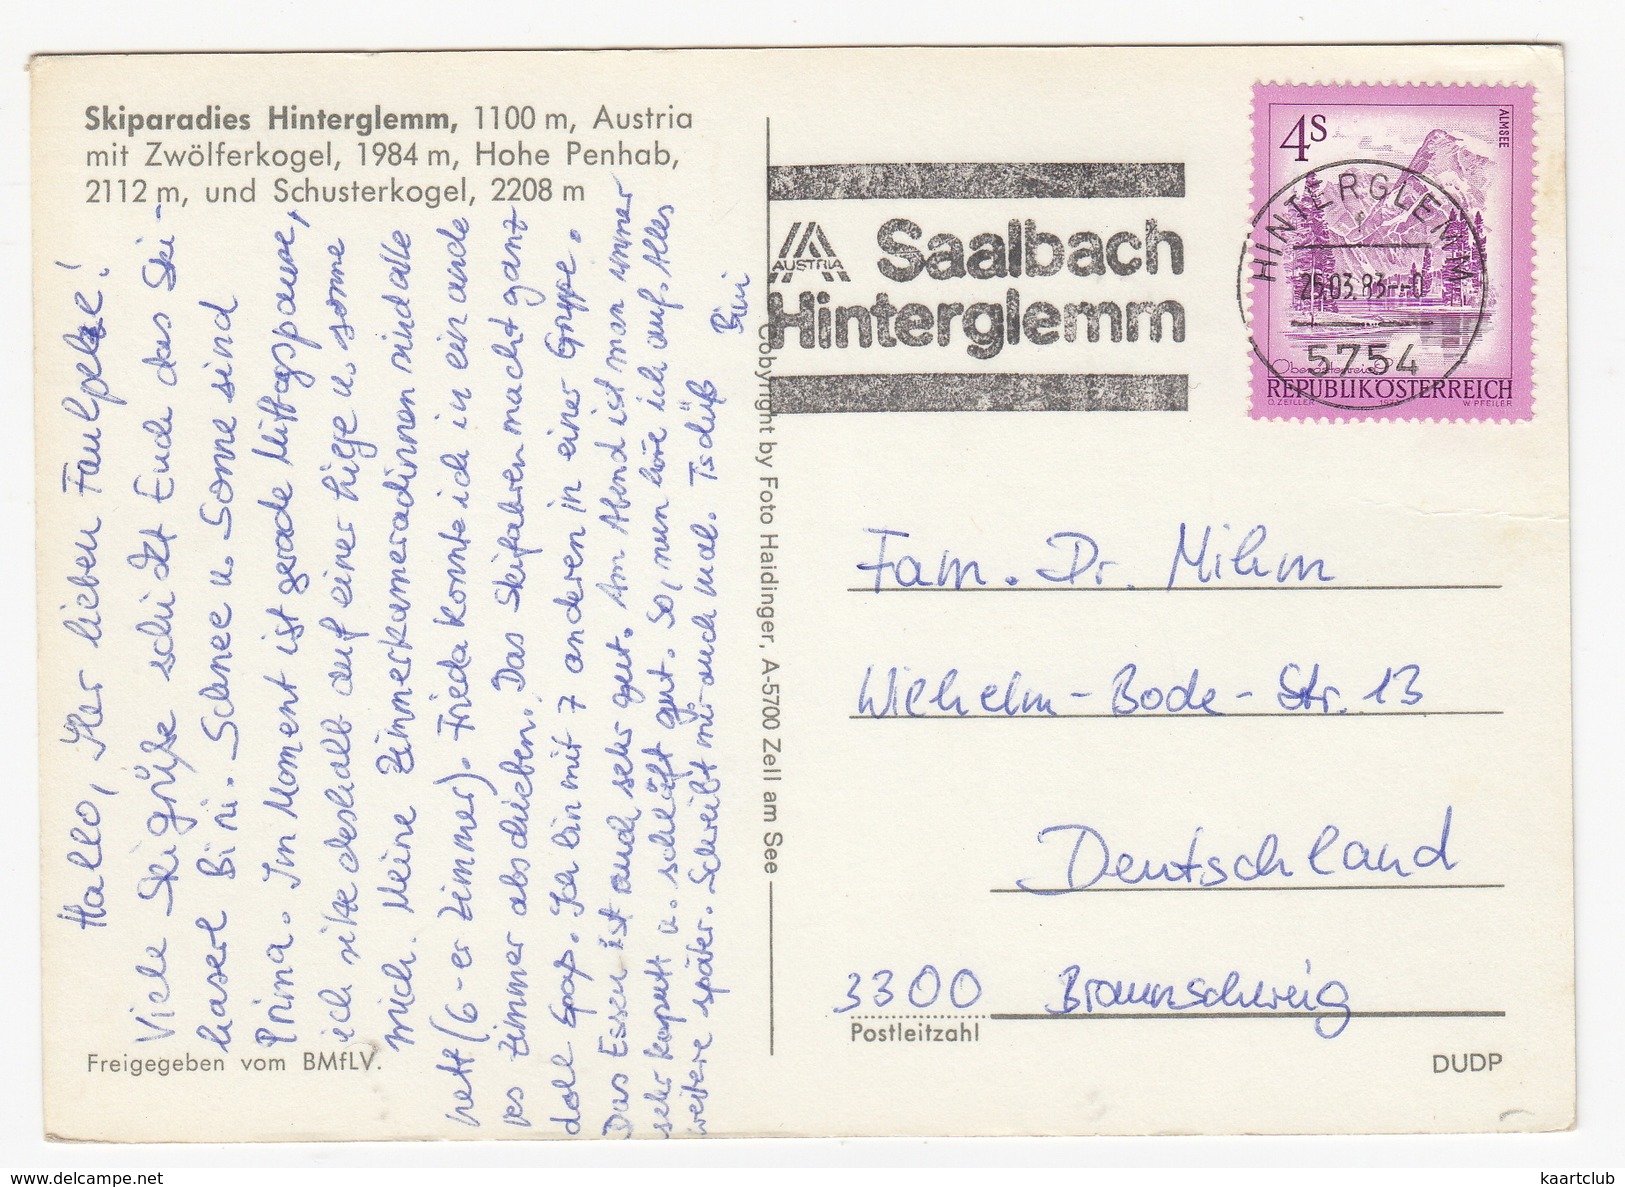 Skiparadies Hinterglemm, 1100 m, Austria
mit Zwölferkogel, 1984 m, Hohe Penhab,
2112 m, und Schusterkogel, 2208 m
Hallo, Ihr lieben Faulpelze!
Viele Skigrüße schickt Euch das Ski-
haserl Bini. Schnee u. Sonne sind
Prima. Im Moment ist gerade Mittagspause,
ich sitze deshalb auf einer Liege u. sonne
mich. Meine Zimmerkameradinnen sind alle
nett (6-er Zimmer). Frieda konnte ich in ein ande
res Zimmer abschieben. Das Skifahren macht ganz
doll Spaß. Ich bin mit 7 anderen in einer Gruppe.
Das Essen ist auch sehr gut. Am Abend ist man immer
sehr kaputt u. schläft gut. So, nun höre ich auf. Alles
weitere später. Schreibt mir auch mal. Tschüß
Bini
Freigegeben vom BMfLV.
Copyright by Foto Haidinger, A-5700 Zell am See
AUSTRIA
Saalbach
Hinterglemm
4S
ALMSEE
HINTERGLEMM
25.03.83--0
5754
Oberösterreich
REPUBLIK ÖSTERREICH
O. ZEILLER
W. PFEILER
Fam. Dr. Mihm
Wilhelm-Bode-Str. 13
Deutschland
3300 Braunschweig
Postleitzahl
DUDP
kaartclub